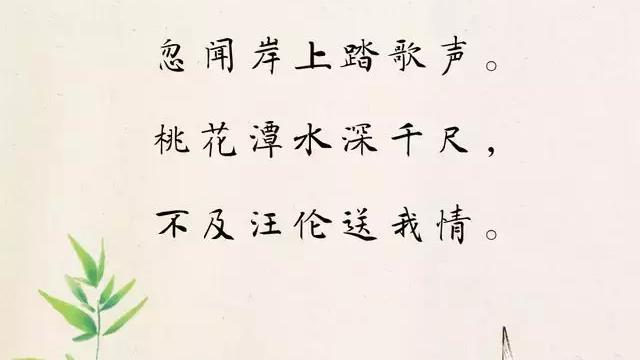 忽闻岸上踏歌声。
桃花潭水深千尺，
不及汪伦送我情。